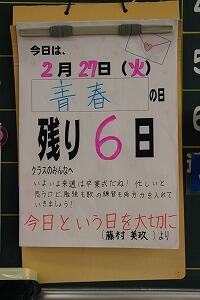 今日は、
2月27日(火)
青春の日
残り6日
クラスのみんなへ
いよいよ来週は卒業式だね！忙しいと
思うけど、勉強も歌の練習も両方力を入れて
いきましょう！
今日という日を大切に
(藤村 美玖)より